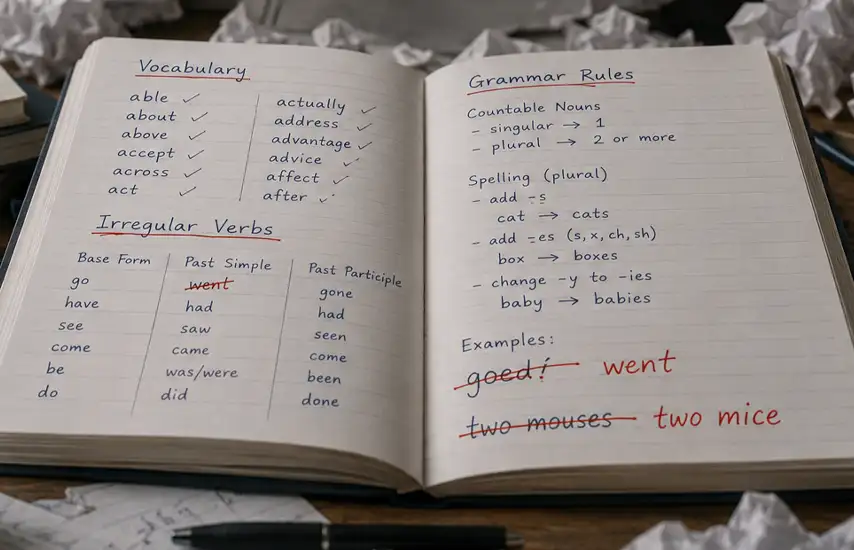 Vocabulary
able ✓ actually ✓
about ✓ address ✓
above ✓ advantage ✓
accept ✓ advice ✓
across ✓ affect ✓
act ✓ after ✓
Irregular Verbs
Base Form Past Simple Past Participle
go went gone
have had had
see saw seen
come came come
be was/were been
do did done
Grammar Rules
Countable Nouns
- singular → 1
- plural → 2 or more
Spelling (plural)
- add -s
cat → cats
- add -es (s, x, ch, sh)
box → boxes
- change -y to -ies
baby → babies
Examples:
goed! went
two mouses two mice